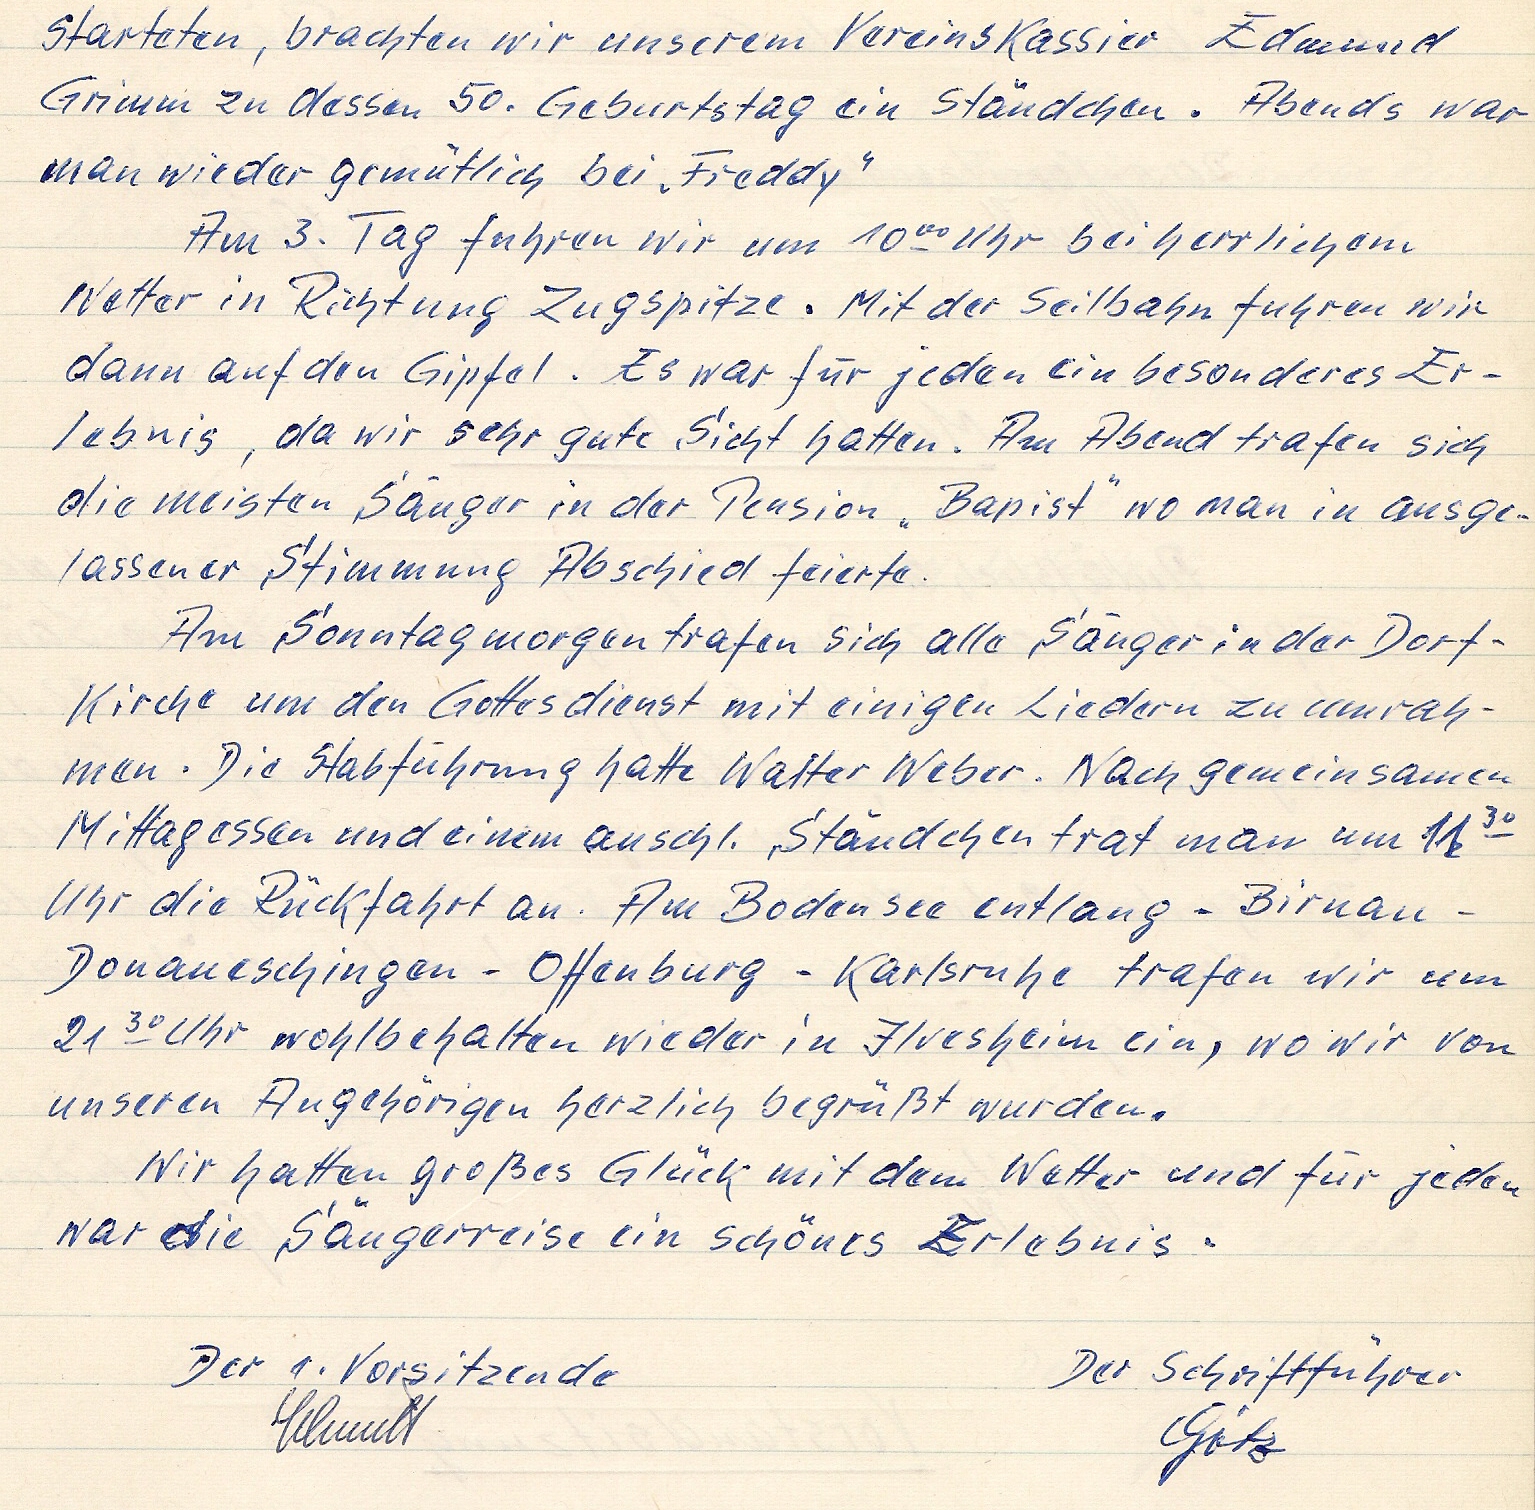 starteten, brachten wir unserem Vereinskassier Edmund
Grimm zu dessen 50. Geburtstag ein Ständchen. Abends war
man wieder gemütlich bei „Freddy"
Am 3. Tag fuhren wir um 10⁰⁰ Uhr bei herrlichem
Wetter in Richtung Zugspitze. Mit der Seilbahn fuhren wir
dann auf den Gipfel. Es war für jeden ein besonderes Er-
lebnis, da wir sehr gute Sicht hatten. Am Abend trafen sich
die meisten Sänger in der Pension „Bapist" wo man in ausge-
lassener Stimmung Abschied feierte.
Am Sonntagmorgen trafen sich alle Sänger in der Dorf-
kirche um den Gottesdienst mit einigen Liedern zu umrah-
men. Die Stabführung hatte Walter Weber. Nach gemeinsamen
Mittagessen und einem anschl. Ständchen trat man um ³⁰
Uhr die Rückfahrt an. Am Bodensee entlang - Birnau -
Donaueschingen - Offenburg - Karlsruhe trafen wir um
21³⁰ Uhr wohlbehalten wieder in Ilvesheim ein, wo wir von
unseren Angehörigen herzlich begrüßt wurden.
Wir hatten großes Glück mit dem Wetter und für jeden
war die Sängerreise ein schönes Erlebnis.
Der 1. Vorsitzende Der Schriftführer
Götz